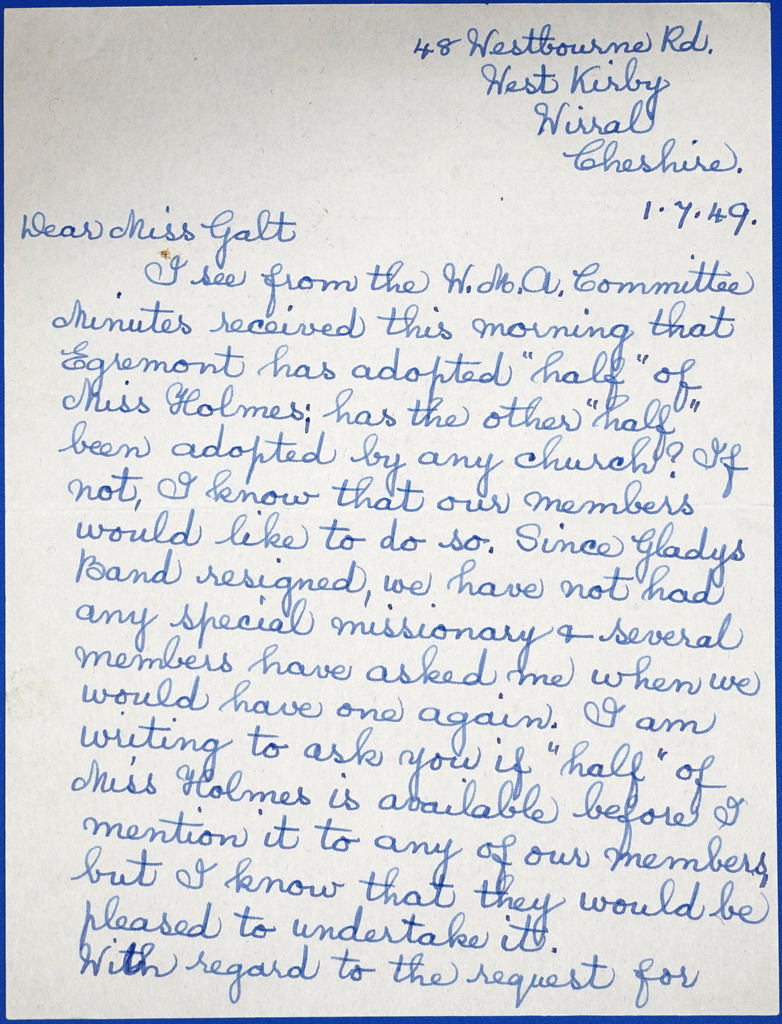 48 Westbourne Rd.
West Kirby
Wirral
Cheshire.
1.7.49.
Dear Miss Galt
I see from the W.M.A. Committee
Minutes received this morning that
Egremont has adopted "half" of
Miss Holmes; has the other "half"
been adopted by any church? If
not, I know that our members
would like to do so. Since Gladys
Band resigned, we have not had
any special missionary & several
members have asked me when we
would have one again. I am
writing to ask you if "half" of
Miss Holmes is available before I
mention it to any of our members,
but I know that they would be
pleased to undertake it.
With regard to the request for